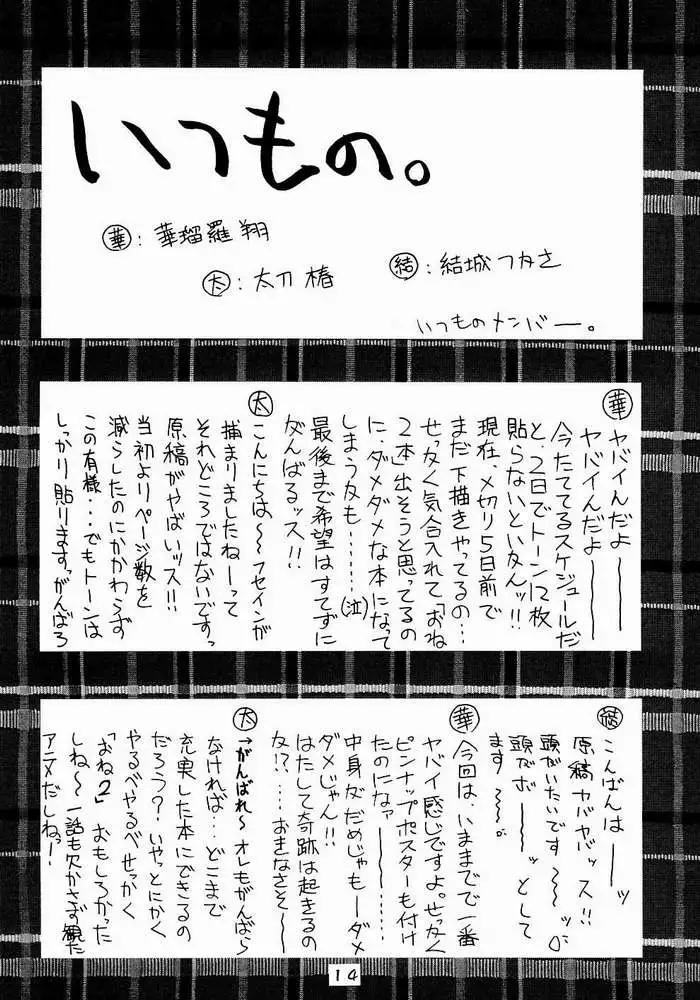 いつもの。
華：華瑠羅翔
太：太刀椿
結：結城つかさ
いつものメンバー。
華
ヤバイんだよ――――
ヤバイんだよ――――
今たててるスケジュールだ
と、2日でトーン12枚
貼らないといかんッ!!
現在、〆切り5日前で
まだ下描きやってるの…
せっかく気合入れて「おね
2本」出そうと思ってるの
に、ダメダメな本になって
しまうかも………(泣)
最後まで希望はすてずに
がんばるッス!!
太
こんにちは～～フセインが
捕まりましたねーーって
それどころではないですっ
原稿がやばいッス!!
当初よりページ数を
減らしたのにかかわらず
この有様…でもトーンは
しっかり貼りますっがんばろ
結
こんばんは――ッ
原稿ヤバヤバッス!!
頭がいたいです～～ッ
頭でボ――ッとして
ます～～。
華
今回は、いままでで一番
ヤバイ感じですよ。せっかく
ピンナップポスターも付け
たのになァ――………
中身がだめじゃもーダメ
ダメじゃん!!
はたして奇跡は起きるの
か!?…おきなさそ～
太
→がんばれ～オレもがんばら
なければ…どこまで
充実した本にできるの
だろう？いやっとにかく
やるべやるべせっかく
「おね2」おもしろかった
しね～一話も欠かさず観た
アニメだしねっ！
14